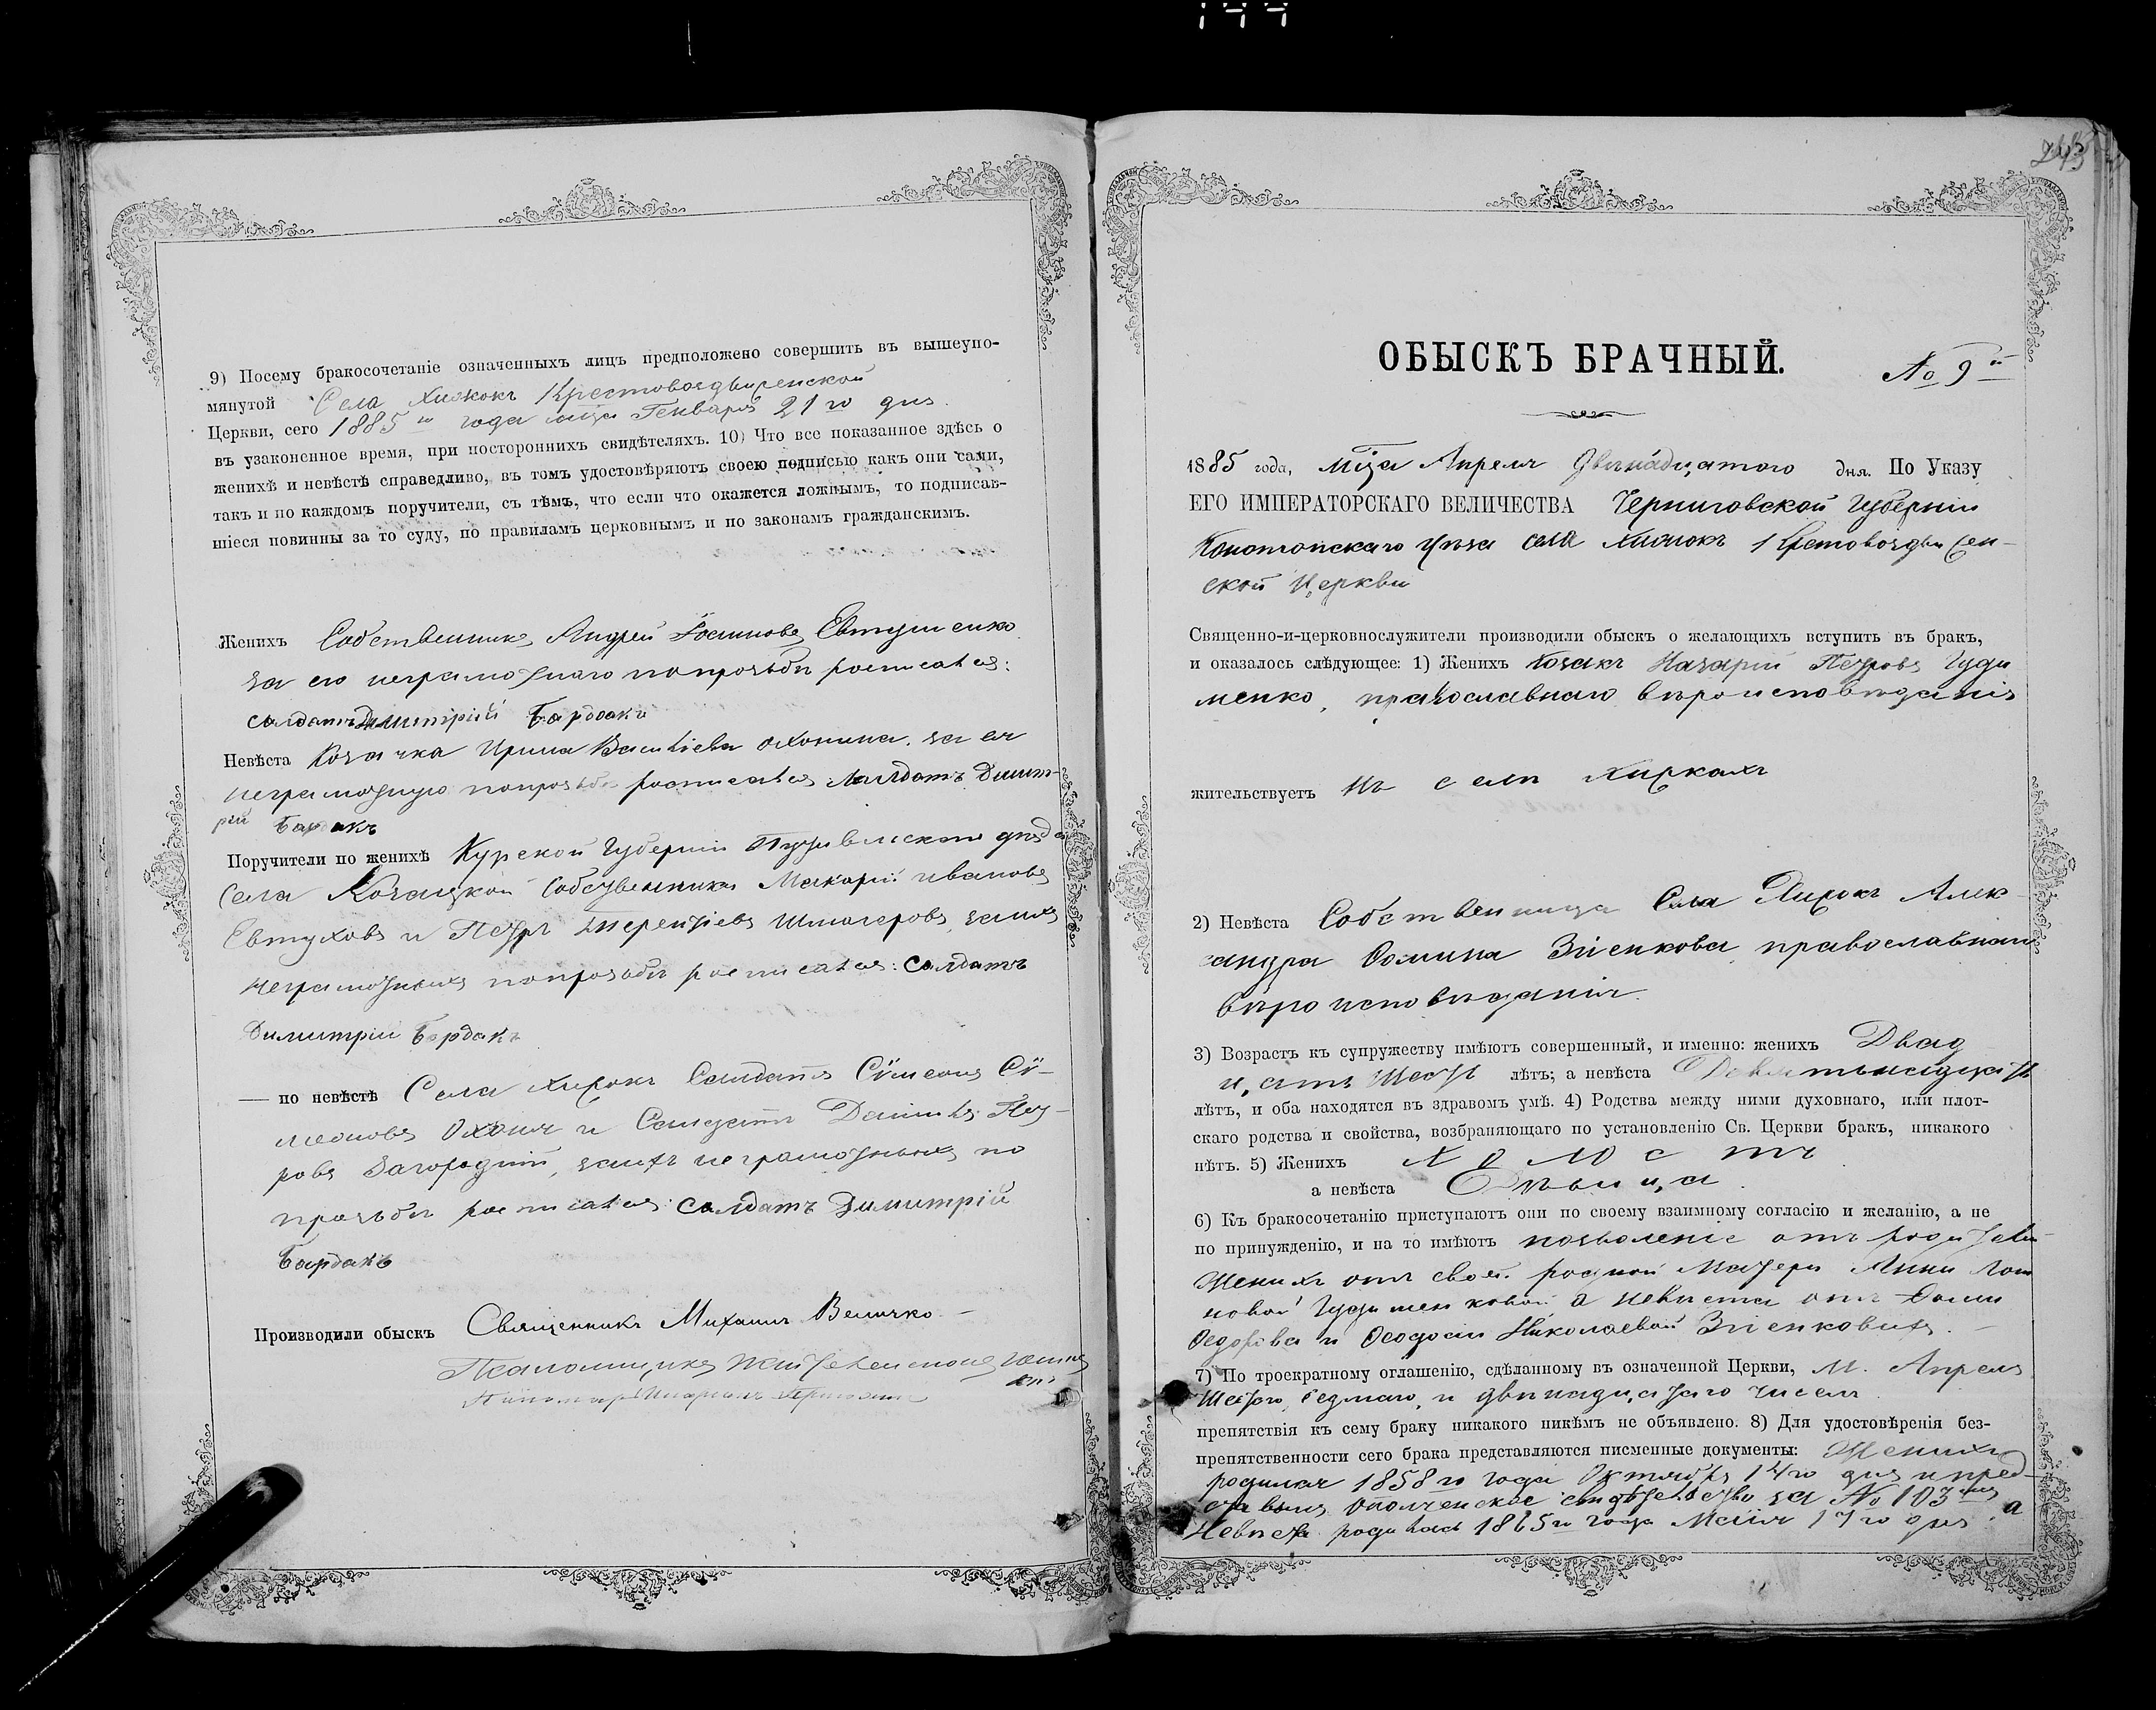 9) Посему бракосочетаніе означенныхъ лицъ предположено совершить въ вышеупо-
мянутой Села Хижокъ Крестовоздвиженской
Церкви, сего 1885го года мца Генваря 21го дня.
въ узаконенное время, при постороннихъ свидѣтеляхъ. 10) Что все показанное здѣсь о
женихѣ и невѣстѣ справедливо, въ томъ удостовѣряютъ своею подписью какъ они сами,
такъ и по каждомъ поручители, съ тѣмъ, что если что окажется ложнымъ, то подписав-
шіеся повинны за то суду, по правиламъ церковнымъ и по законамъ гражданскимъ.
Женихъ Собственникъ Андрей Евтушенко
за его неграмотнаго попрозьбѣ росписался:
солдатъ Димитрій Бардакъ
Невѣста Козачка Ирина Васильева Охонина, за ея
неграмотную попрозьбѣ росписался Солдатъ Димит-
рій Бардакъ
Поручители по женихѣ Курской Губерніи Путивльскаго уѣзда
Села Козацкой Собственники Макарій Ивановъ
Евтуховъ и Петръ Терентіевъ, за ихъ
неграмотныхъ попрозьбѣ росписался: солдатъ
Димитрій Бардакъ
— по невѣстѣ Села Солдатъ Сѵмеонъ Сѵ-
меоновъ Охоня и Солдатъ Даніилъ Пет-
ровъ Загородній, за ихъ неграмотныхъ по
прозьбѣ росписался: солдатъ Димитрій
Бардакъ
Производили обыскъ Священникъ Михаилъ Величко
Псаломщикъ
Пономарь
243
ОБЫСКЪ БРАЧНЫЙ. № 9й
1885 года, Мца Апреля Двѣнадцатого дня. По Указу
ЕГО ИМПЕРАТОРСКАГО ВЕЛИЧЕСТВА Черниговской Губерніи
Конотопскаго уѣзда села Хижокъ Крестовоздвижен-
ской Церкви
Священно-и-церковнослужители производили обыскъ о желающихъ вступить въ бракъ,
и оказалось слѣдующее: 1) Женихъ Козакъ Назарій Петровъ Гуди
менко, православнаго вѣроисповѣданія
жительствуетъ въ селѣ
2) Невѣста Собственница Села Алек
сандра Фомина Зіенкова, православнаго
вѣроисповѣданія.
3) Возрастъ къ супружеству имѣютъ совершенный, и именно: женихъ Двад
цать шесть лѣтъ; а невѣста Девятьнадцать
лѣтъ, и оба находятся въ здравомъ умѣ. 4) Родства между ними духовнаго, или плот-
скаго родства и свойства, возбраняющаго по установленію Св. Церкви бракъ, никакого
нѣтъ. 5) Женихъ Холостъ
а невѣста Дѣвица.
6) Къ бракосочетанію приступаютъ они по своему взаимному согласію и желанію, а не
по принужденію, и на то имѣютъ позволеніе отъ родителей
Женихъ отъ своей родной Матери Анны
Гудименковой а невѣста отъ Фомы
Федорова и Феодосіи Николаевой Зіенковыхъ.
7) По троекратному оглашенію, сдѣланному въ означенной Церкви, М. Апреля
Шестого, седмаго, и двѣнадцатаго чиселъ
препятствія къ сему браку никакого никѣмъ не объявлено. 8) Для удостовѣренія без-
препятственности сего брака представляются писменные документы: Женихъ
родился 1858го года Октября 14го дня и пред-
ставилъ ополченское свидѣтельство за № 103мъ, а
Невѣста родилась 1865го года Маія 17го дня.